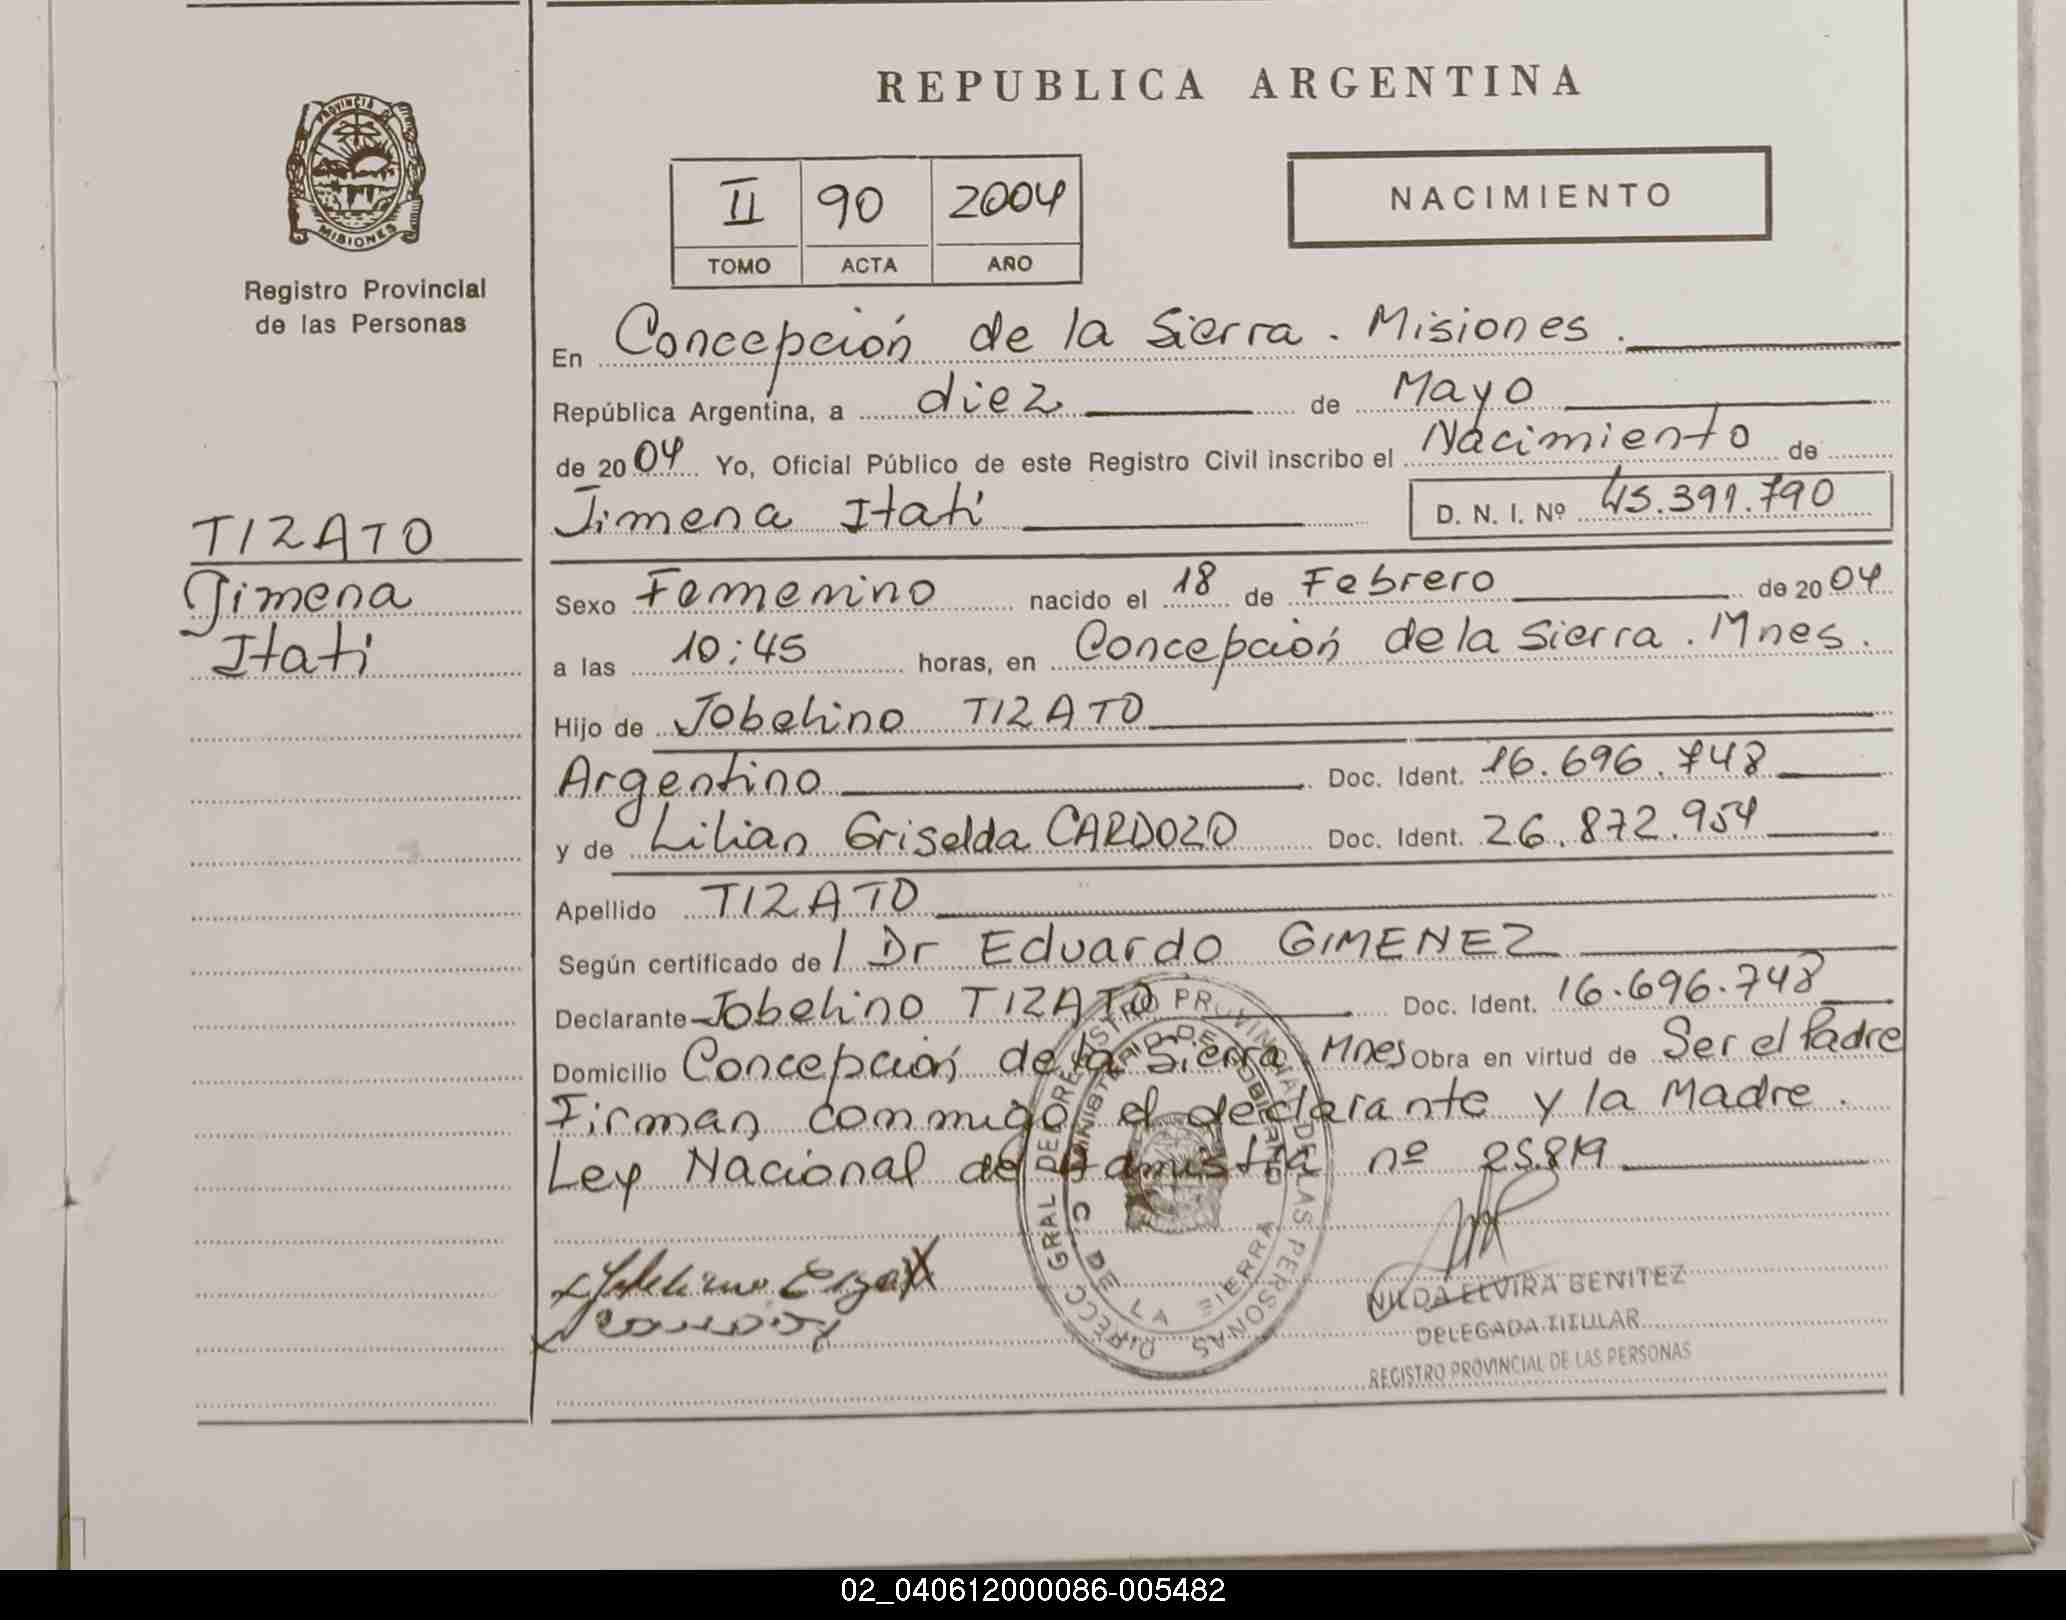 REPUBLICA ARGENTINA
PROVINCIA DE
MISIONES
Registro Provincial
de las Personas
II 90 2004
TOMO ACTA AÑO
NACIMIENTO
En Concepción de la Sierra . Misiones .
República Argentina, a diez de Mayo
de 2004 Yo, Oficial Público de este Registro Civil inscribo el Nacimiento de
Jimena Itatí
D. N. I. Nº 45.391.790
TIZATO
Jimena
Itatí
Sexo Femenino nacido el 18 de Febrero de 2004
a las 10:45 horas, en Concepción de la Sierra . Mnes .
Hijo de Jobelino TIZATO
Argentino Doc. Ident. 16.696.748
y de Lilian Griselda CARDOZO Doc. Ident. 26.872.954
Apellido TIZATO
Según certificado de / Dr Eduardo GIMENEZ
Declarante Jobelino TIZATO Doc. Ident. 16.696.748
Domicilio Concepción de la Sierra Mnes Obra en virtud de Ser el Padre
Firman conmigo el declarante y la Madre .
Ley Nacional de Admistía nº 25.819
DIRECC GRAL DE REGISTRO PROVINCIAL DE LAS PERSONAS
MINISTERIO DE GOBIERNO
C. DE LA SIERRA
NILDA ELVIRA BENITEZ
DELEGADA TITULAR
REGISTRO PROVINCIAL DE LAS PERSONAS
02_040612000086-005482